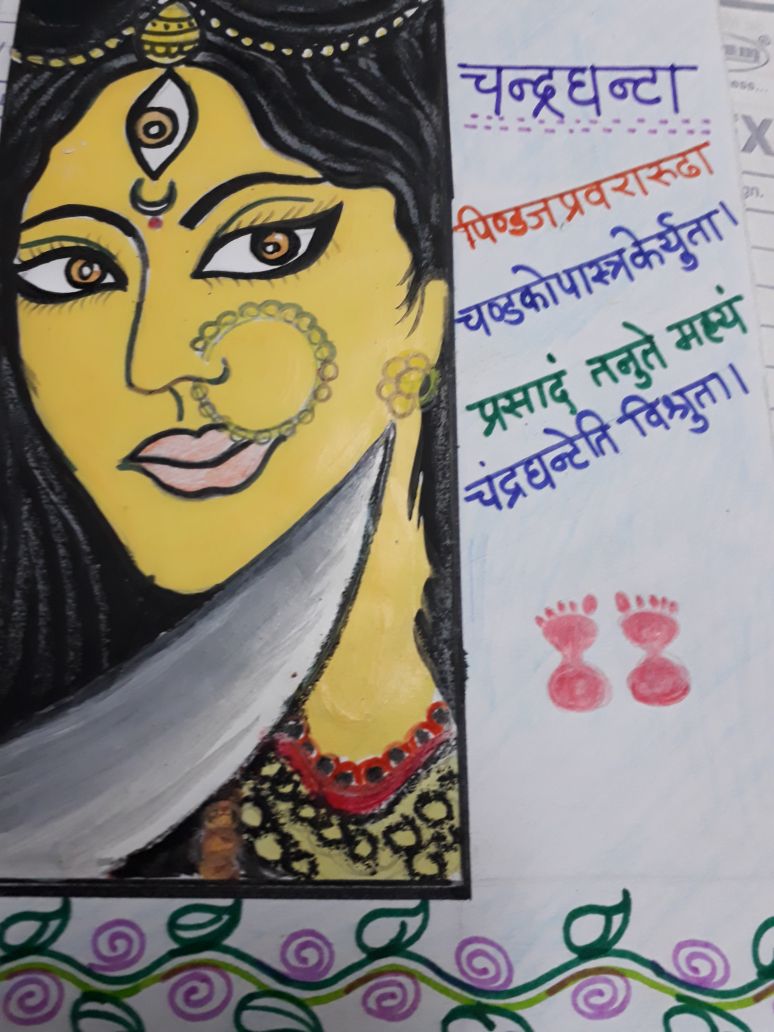 चन्द्रघन्टा
पिण्डजप्रवरारूढा
चण्डकोपास्त्रकेर्युता।
प्रसादं तनुते मह्यं
चंद्रघन्टेति विश्रुता।
ess...
X
gn.